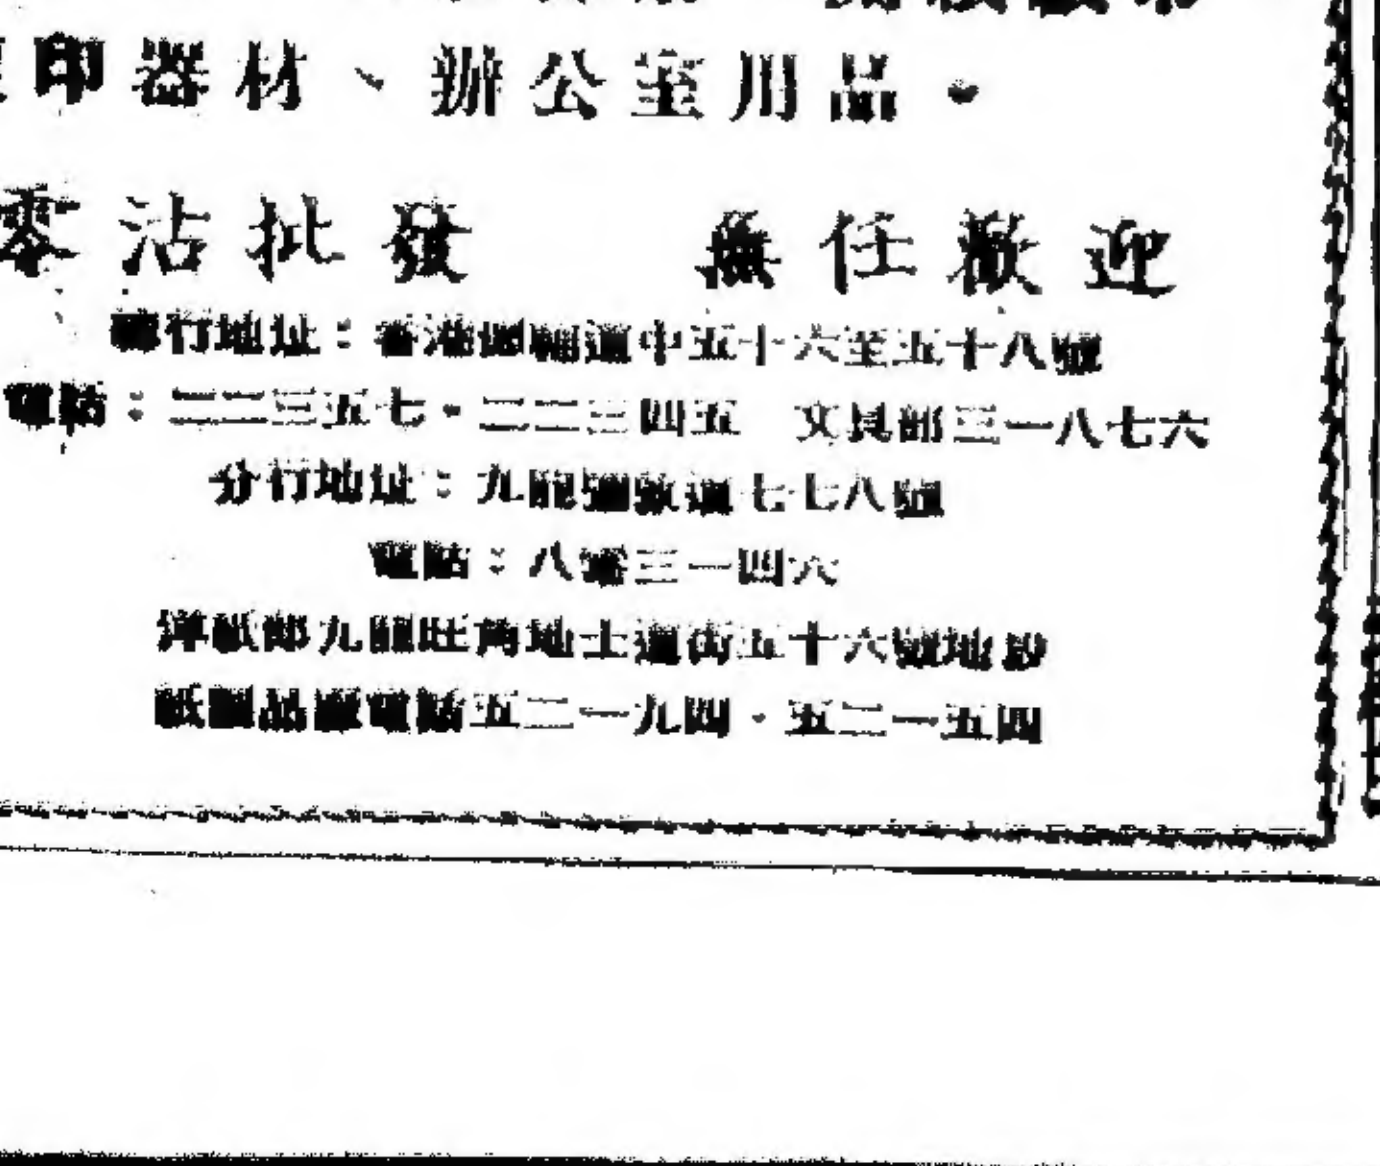 印器材、辦公室用品。
零沽批發　無任歡迎
總行地址：香港德輔道中五十六至五十八號
電話：二二三五七・二二三四五　文具部三一八七六
分行地址：九龍彌敦道七七八號
電話：八零三一四六
洋紙部九龍旺角地士道街五十六號地
紙製品廠電話五二一九四・五二一五四